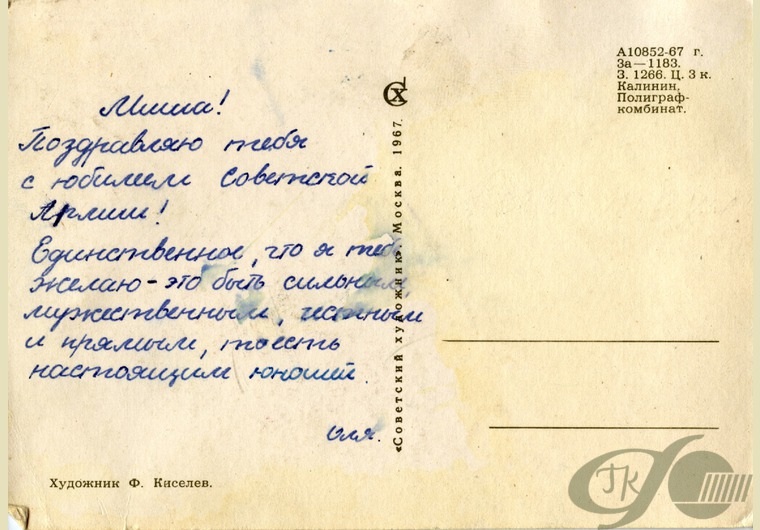 Миша!
Поздравляю тебя
с юбилеем Советской
Армии!
Единственное, что я тебе
желаю - это быть сильным,
мужественным, честным
и прямым, тоесть
настоящим юношей.
Оля.
Художник Ф. Киселев.
«Советский художник». Москва. 1967.
СХ
А10852-67 г.
За—1183.
З. 1266. Ц. 3 к.
Калинин.
Полиграф-
комбинат.
ГК